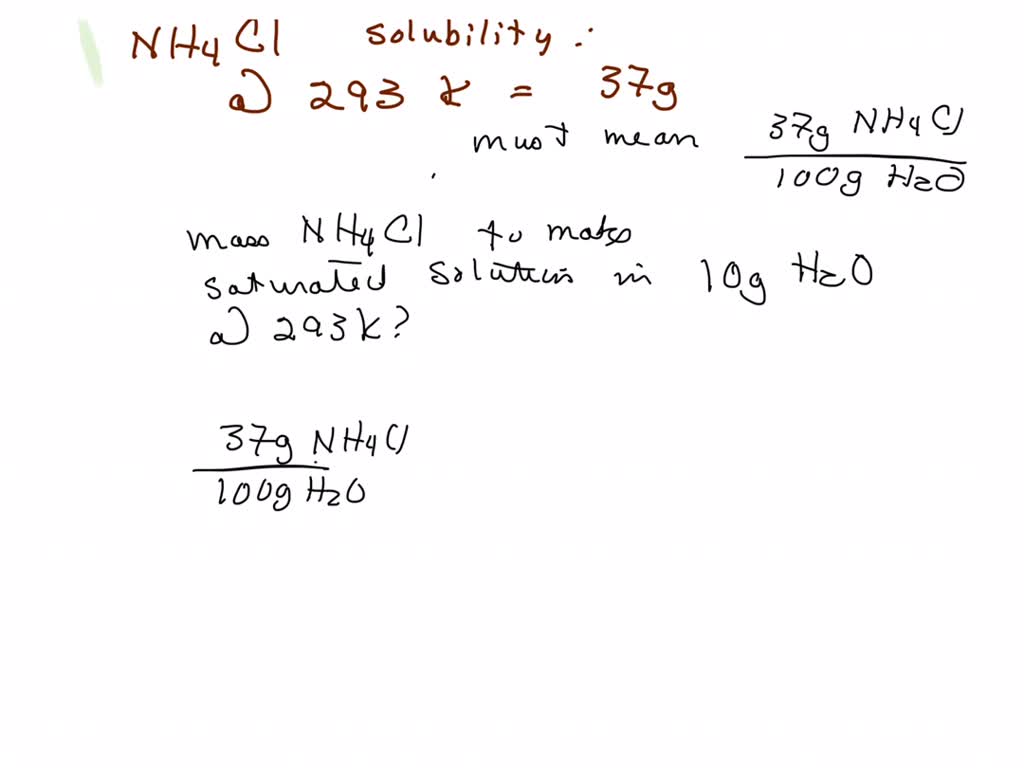 NH4Cl solubility:
a) 293 K = 37g
must mean 37g NH4Cl
100g H2O
mass NH4Cl to make
saturated solution in 10g H2O
a) 293K?
37g NH4Cl
100g H2O